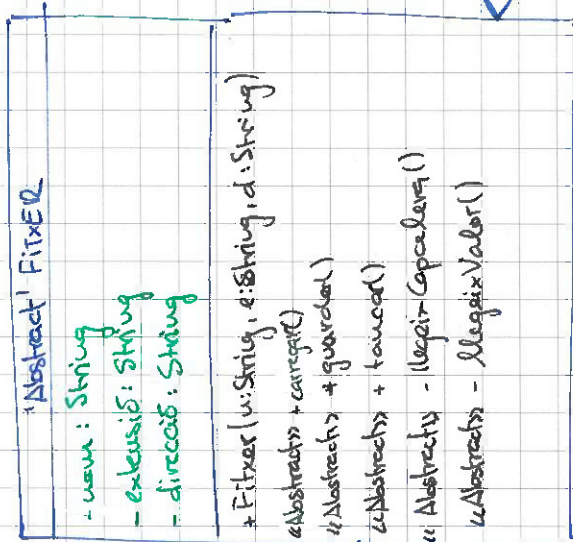 'Abstract' FITXER
- nom : String
- extensió : String
- direcció : String
+ Fitxer(n:String, e:String, d:String)
«Abstract» + carregar()
«Abstract» + guardar()
«Abstract» + tancar()
«Abstract» - llegeixCapcelera()
«Abstract» - llegeixValor()